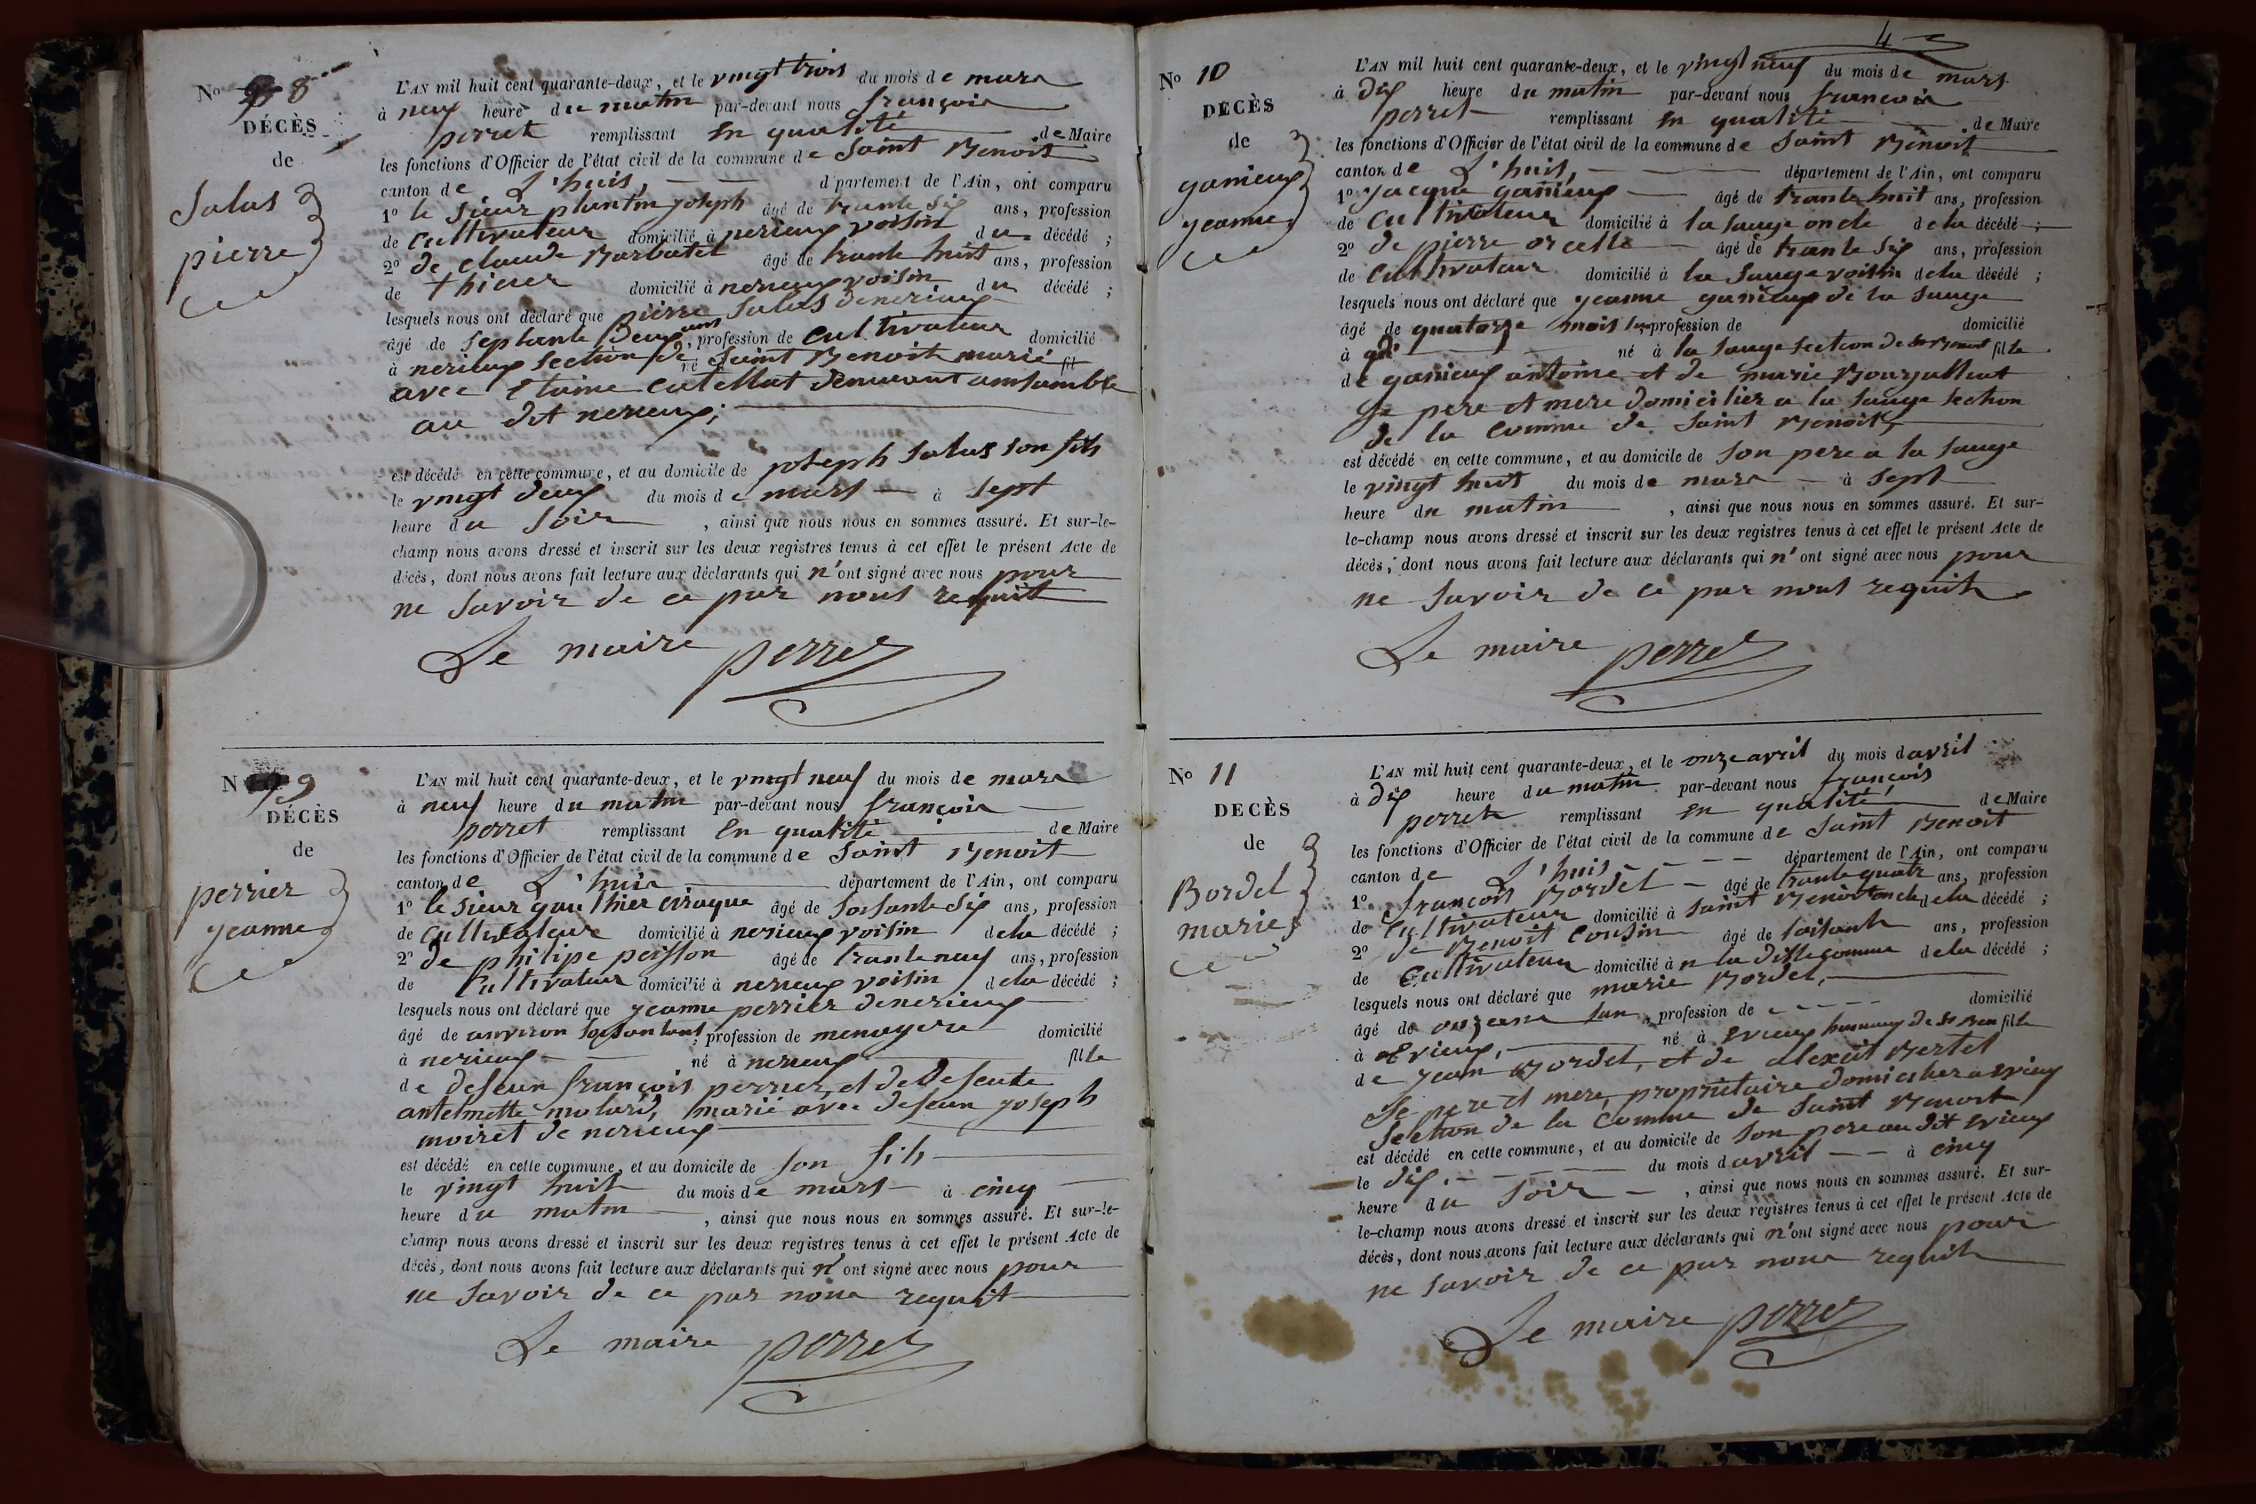 No 8
DÉCÈS
de
Salus
pierre
L'AN mil huit cent quarante-deux, et le vingt trois du mois de mars
à neuf heure du matin par-devant nous françois
perret remplissant en qualité de Maire
les fonctions d'Officier de l'état civil de la commune de Saint Benoit
canton de L'huis, département de l'Ain, ont comparu
1o le sieur plantin joseph âgé de trante six ans, profession
de Cultivateur domicilié à nerieux voisin du décédé ;
2o de claude Barbatel âgé de trante huit ans, profession
de thicier domicilié à nerieux voisin du décédé ;
lesquels nous ont déclaré que pierre Salus de nerieux
âgé de septante Deux ans, profession de Cultivateur domicilié
à nerieux section de Saint Benoit marié né fil
avec Etaine Catellat demeurant ansamble
au dit nerieux ;
est décédé en cette commune, et au domicile de joseph Salus son fils
le vingt deux du mois de mars à sept
heure du soir , ainsi que nous nous en sommes assuré. Et sur-le-
champ nous avons dressé et inscrit sur les deux registres tenus à cet effet le présent Acte de
décès, dont nous avons fait lecture aux déclarants qui n'ont signé avec nous pour
ne savoir de ce par nous requit
Le maire perret
No 9
DÉCÈS
de
perrier
jeanne
L'AN mil huit cent quarante-deux, et le vingt neuf du mois de mars
à neuf heure du matin par-devant nous françois
perret remplissant en qualité de Maire
les fonctions d'Officier de l'état civil de la commune de Saint Benoit
canton de L'huis département de l'Ain, ont comparu
1o le sieur gauthier ciraque âgé de soisante six ans, profession
de Cultivateur domicilié à nerieux voisin de la décédé ;
2o de philipe poisson âgé de trante neuf ans, profession
de Cultivateur domicilié à nerieux voisin de la décédé ;
lesquels nous ont déclaré que jeanne perrier de nerieux
âgé de anviron soisante ans, profession de menagere domicilié
à nerieux né à nerieux fille
de defeun françois perrier, et de defeute
antelmette molard, marié avec defeun joseph
moiret de nerieux
est décédé en cette commune, et au domicile de son fils
le vingt huit du mois de mars à cinq
heure du matin , ainsi que nous nous en sommes assuré. Et sur-le-
champ nous avons dressé et inscrit sur les deux registres tenus à cet effet le présent Acte de
décès, dont nous avons fait lecture aux déclarants qui n'ont signé avec nous pour
ne savoir de ce par nous requit
Le maire perret
4
No 10
DECÈS
de
ganieux
jeanne
L'AN mil huit cent quarante-deux, et le vingt neuf du mois de mars
à dix heure du matin par-devant nous françois
perret remplissant en qualité de Maire
les fonctions d'Officier de l'état civil de la commune de Saint Benoit
canton de L'huis, département de l'Ain, ont comparu
1o jacque ganieux âgé de trante huit ans, profession
de Cultivateur domicilié à la sauge oncle de la décédé ;
2o de pierre orcelle âgé de trante six ans, profession
de Cultivateur domicilié à la Sauge voisin de la décédé ;
lesquels nous ont déclaré que jeanne ganieux de la sauge
âgé de quatorze mois profession de domicilié
à né à la sauge section de St Benoit fille
de ganieux antoine et de marie Bourgallioat
Se pere et mere domicilier a la sauge section
de la Comune de Saint Benoit,
est décédé en cette commune, et au domicile de son pere a la sauge
le vingt huit du mois de mars à sept
heure du matin , ainsi que nous nous en sommes assuré. Et sur-
le-champ nous avons dressé et inscrit sur les deux registres tenus à cet effet le présent Acte de
décès, dont nous avons fait lecture aux déclarants qui n'ont signé avec nous pour
ne savoir de ce par nous requit
Le maire perret
No 11
DECÈS
de
Bordel
marie
L'AN mil huit cent quarante-deux, et le onze avril du mois d avril
à dix heure du matin par-devant nous françois
perret remplissant en qualité de Maire
les fonctions d'Officier de l'état civil de la commune de Saint Benoit
canton de L'huis département de l'Ain, ont comparu
1o françois Bordel âgé de trante quatr ans, profession
de Cultivateur domicilié à Saint Benoit oncle de la décédé ;
2o de Benoit Cousin âgé de soisante ans, profession
de Cultivateur domicilié à la ditte comune de la décédé ;
lesquels nous ont déclaré que marie Bordel,
âgé de profession de domicilié
à Evieux, né à Evieux de St Ben fille
de jean Bordel, et de alexcit Bertet
Se pere et mere, propriétaire domicilier a Evieux
Section de la Comune de Saint Benoit
est décédé en cette commune, et au domicile de son pere au dit Evieux
le dix du mois d avril à cinq
heure du soir , ainsi que nous nous en sommes assuré. Et sur-
le-champ nous avons dressé et inscrit sur les deux registres tenus à cet effet le présent Acte de
décès, dont nous avons fait lecture aux déclarants qui n'ont signé avec nous pour
ne savoir de ce par nous requit
Le maire perret